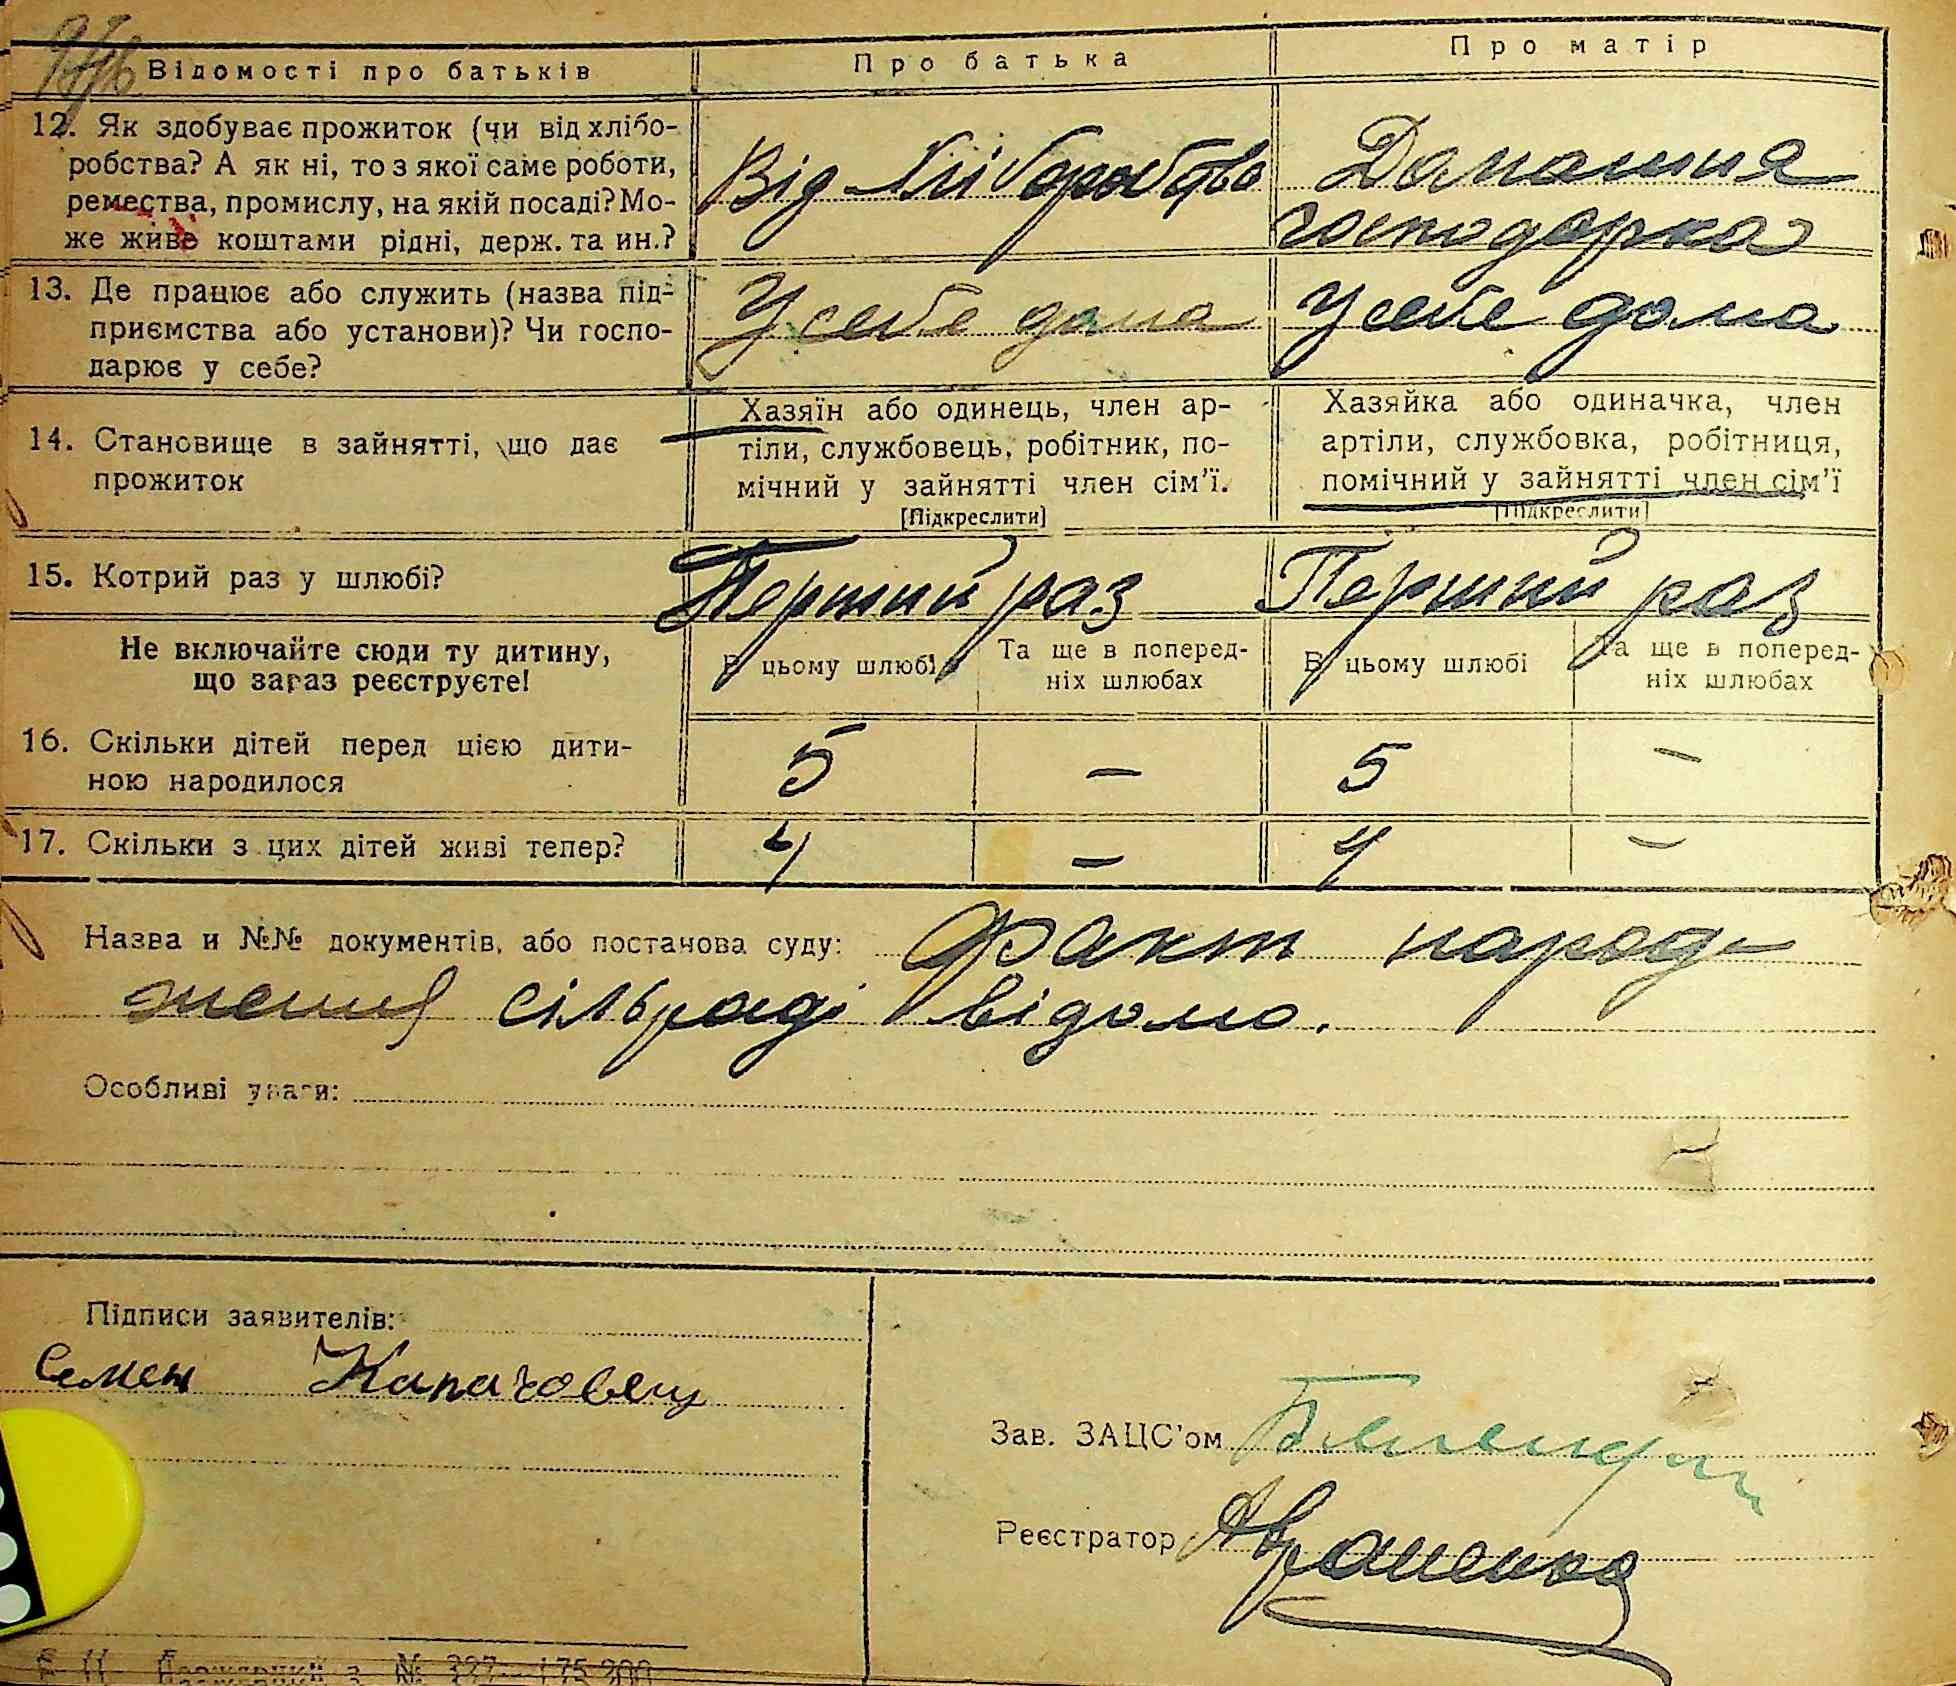 Відомості про батьків
Про батька
Про матір
12. Як здобуває прожиток (чи від хлібо-
робства? А як ні, то з якої саме роботи,
ремества, промислу, на якій посаді? Мо-
же живе коштами рідні, держ. та ин.?
Від хліборобства
Домашня
господарка
13. Де працює або служить (назва під-
приємства або установи)? Чи госпо-
дарює у себе?
У себе дома
У себе дома
14. Становище в зайнятті, що дає
прожиток
Хазяїн або одинець, член ар-
тіли, службовець, робітник, по-
мічний у зайнятті член сім'ї.
[Підкреслити]
Хазяйка або одиначка, член
артіли, службовка, робітниця,
помічний у зайнятті член сім'ї
[Підкреслити]
15. Котрий раз у шлюбі?
Перший раз
Перший раз
Не включайте сюди ту дитину,
що зараз реєструєте!
В цьому шлюбі
Та ще в поперед-
ніх шлюбах
В цьому шлюбі
Та ще в поперед-
ніх шлюбах
16. Скільки дітей перед цією дити-
ною народилося
5 – 5 –
17. Скільки з цих дітей живі тепер?
4 – 4 –
Назва и №№ документів, або постанова суду: Факт народ-
ження сільраді відомо.
Особливі уваги:
Підписи заявителів:
Семен Капачовец
Зав. ЗАЦС'ом
Реєстратор
№ 327—175.200